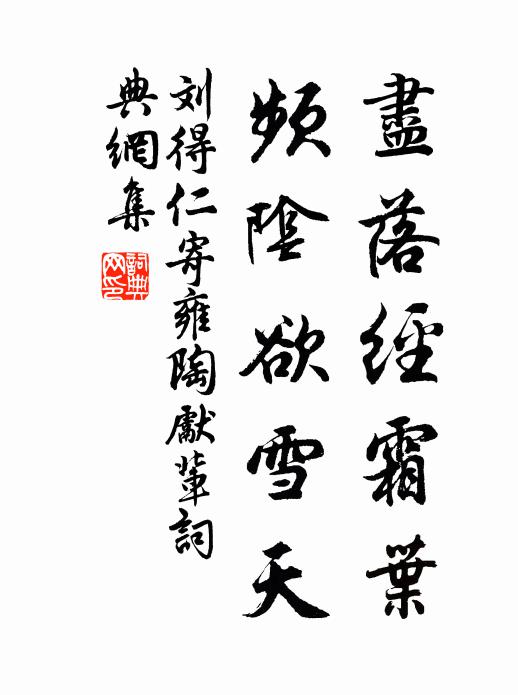 盡落經霜葉
頻陰欲雪天
刘得仁寄雍陶獻輩詞
典網集
詞典
网印